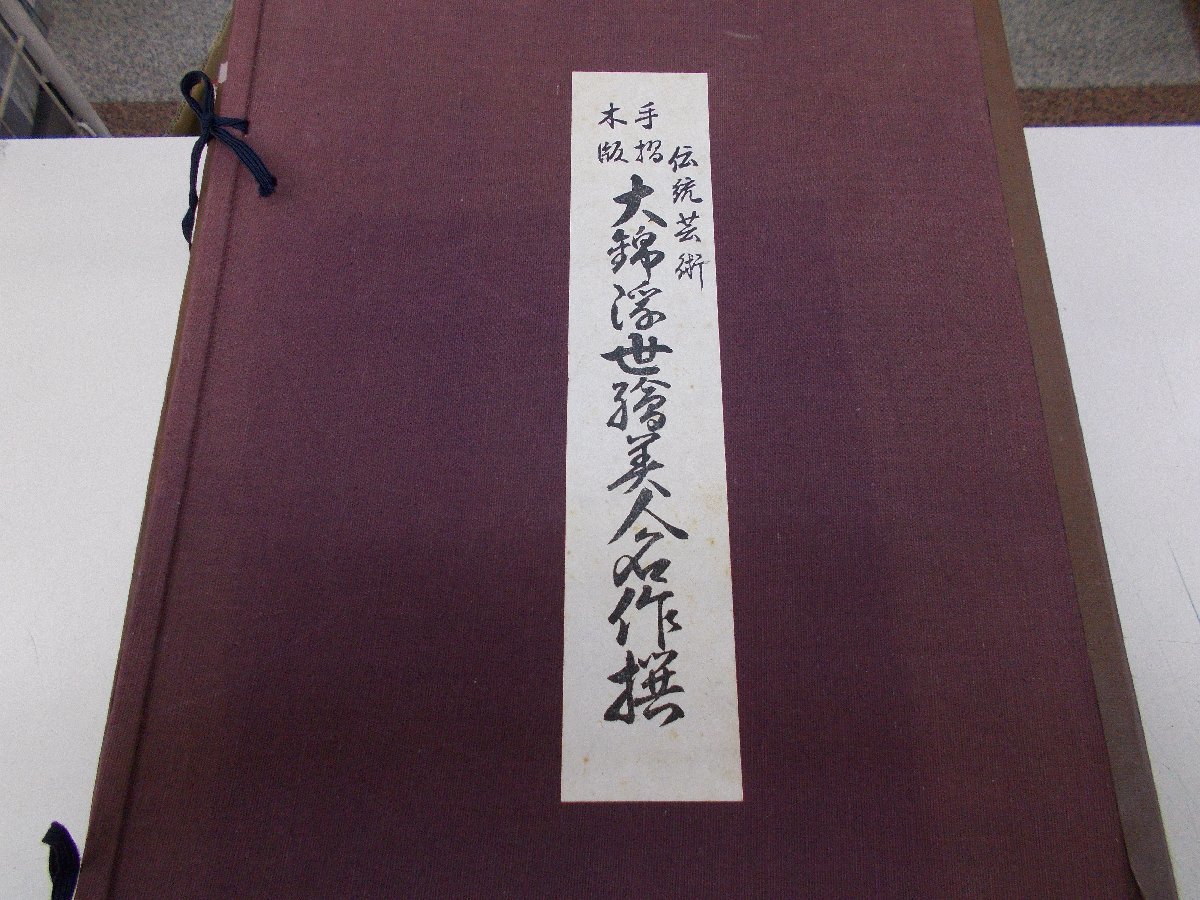 伝統芸術
手摺
木版
大錦浮世繪美人名作撰